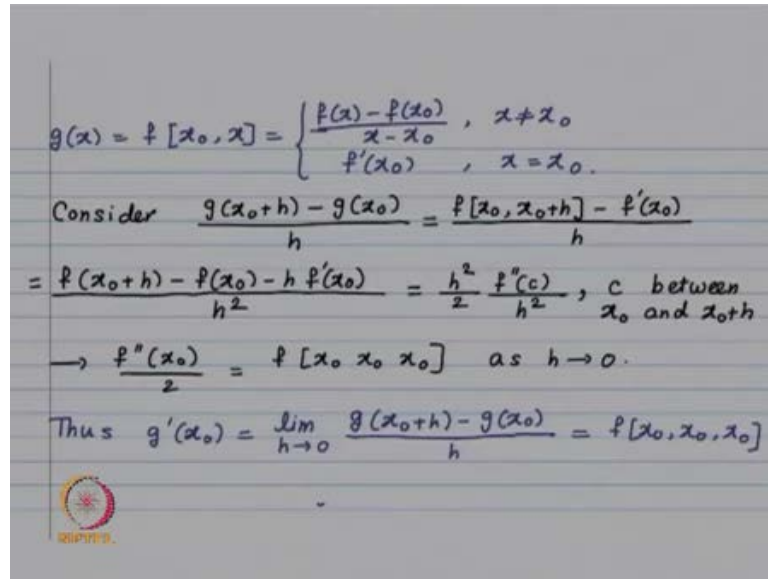 g(x) = f [x₀, x] = { (f(x) − f(x₀)) / (x − x₀) , x ≠ x₀
f'(x₀) , x = x₀.
Consider (g(x₀+h) − g(x₀)) / h = (f[x₀, x₀+h] − f'(x₀)) / h
= (f(x₀+h) − f(x₀) − h f'(x₀)) / h² = (h² / 2) (f''(c) / h²) , c between x₀ and x₀+h
⟶ f''(x₀) / 2 = f [x₀ x₀ x₀] as h → 0.
Thus g'(x₀) = lim h→0 (g(x₀+h) − g(x₀)) / h = f[x₀, x₀, x₀]